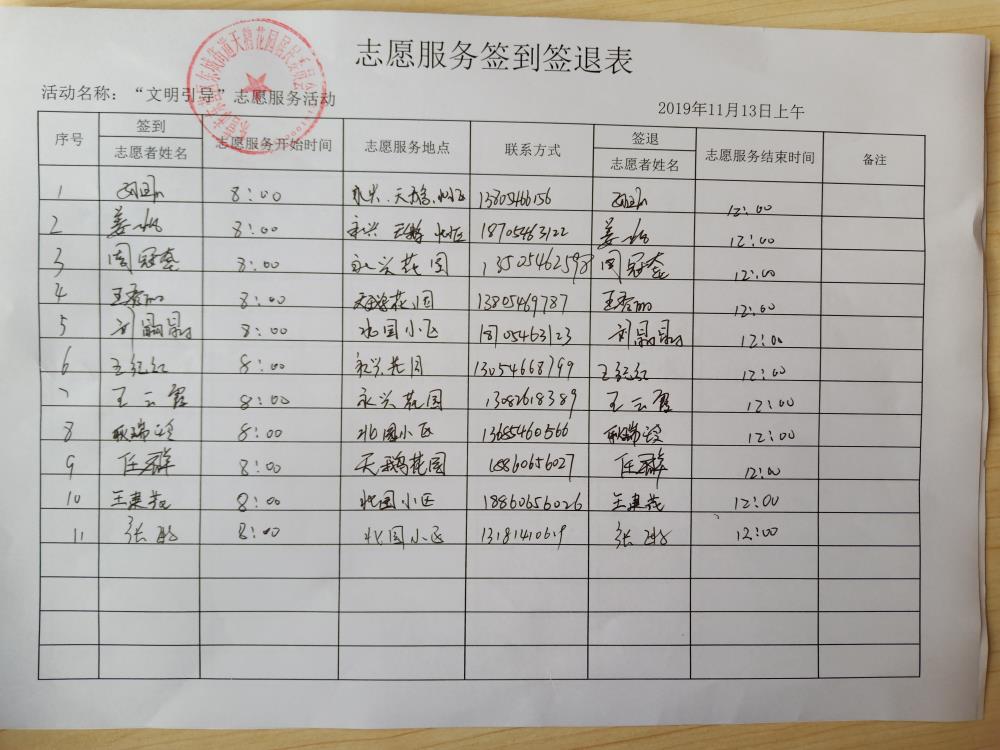 志愿服务签到签退表
东城街道天鹅花园居民委员会
活动名称：“文明引导”志愿服务活动
2019年11月13日上午
序号 签到 志愿服务开始时间 志愿服务地点 联系方式 签退 志愿服务结束时间 备注
志愿者姓名 志愿者姓名
1 8:00 永兴、天鹅、北区 13805466156 12:00
2 姜 8:00 永兴 天鹅 北区 18705463122 姜 12:00
3 周冠鑫 8:00 永兴花园 13505462598 周冠鑫 12:00
4 王 8:00 天鹅花园 13805469787 王 12:00
5 刘 8:00 北国小区 18705463123 刘 12:00
6 王纪红 8:00 永兴花园 13054668799 王纪红 12:00
7 王云霞 8:00 永兴花园 13082618389 王云霞 12:00
8 耿瑞 8:00 北国小区 13685460566 耿瑞 12:00
9 任群 8:00 天鹅花园 18860656027 任群 12:00
10 王建 8:00 北国小区 18860656026 王建 12:00
11 张 8:00 北国小区 13181410619 张 12:00